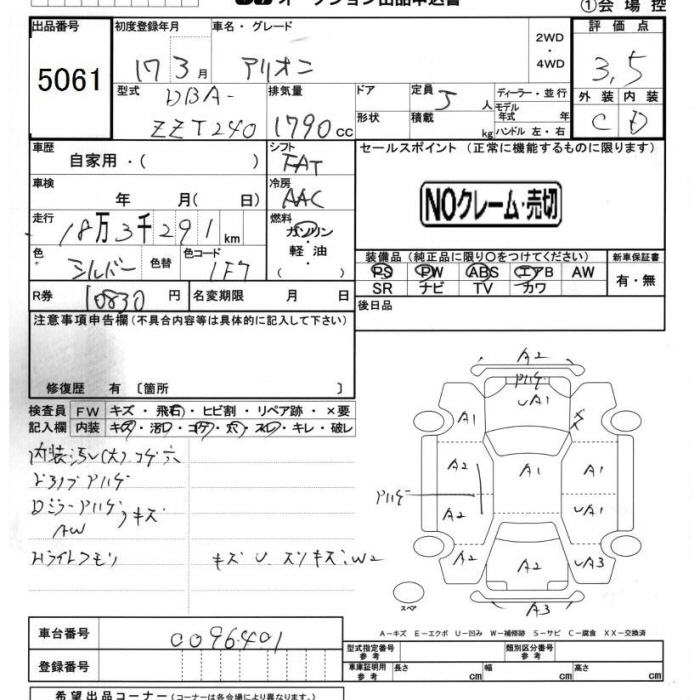 オークション出品申込書
①会場控
出品番号
5061
初度登録年月
17 3月
車名・グレード
アリオン
2WD
・
4WD
評価点
3,5
型式
DBA-
ZZT240
排気量
1790cc
ドア
形状
定員 5人
積載 kg
ディーラー・並行
モデル年式 年
ハンドル 左・右
外装 内装
C D
車歴
自家用・( )
シフト
FAT
セールスポイント(正常に機能するものに限ります)
車検
年 月( 日)
冷房
AAC
NOクレーム・売切
走行
18万3千291km
燃料
ガソリン
軽・油
( )
色
シルバー
色替
色コード
1F7
装備品(純正品に限り○をつけてください)
新車保証書
PS PW ABS エアB AW
SR ナビ TV カワ
有・無
R券
10830円
名変期限 月 日
後日品
注意事項申告欄(不具合内容等は具体的に記入して下さい)
修復歴 有〔箇所 〕
検査員 FW キズ・飛石・ヒビ割・リペア跡・×要
記入欄 内装 キズ・汚レ・コゲ・穴・スレ・キレ・破レ
内装汚レ(大)コゲ穴
ドアノブアハゲ
Dミラーアハゲ
AW キズ
Hライトクモリ
キズ U スリキズ:W2
A2
アハゲ
UA1
A1
A2 A1 A1
アハゲ
A2 UA1
A2 A2 UA3
A3
スペア
A-キズ E-エクボ U-凹み W-補修跡 S-サビ C-腐食 XX-交換済
車台番号
0096401
型式指定番号
参考
類別区分番号
参考
登録番号
車庫証明用
参考
長さ cm
幅 cm
高さ cm
希望出品コーナー(コーナーは各会場により異なります。)